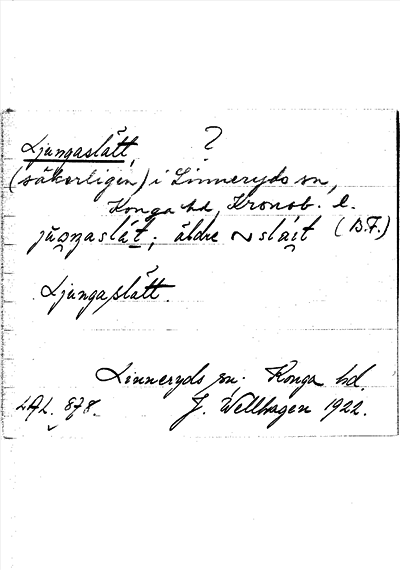 Ljungaslätt, ?
(säkerligen) i Linneryds sn,
Konga hd, Kronob. l.
jåŋaslát; äldre ~slait (B.F.)
Ljungaslätt.
Linneryds sn; Konga hd.
LAL. 878. J. Wellhagen 1922.